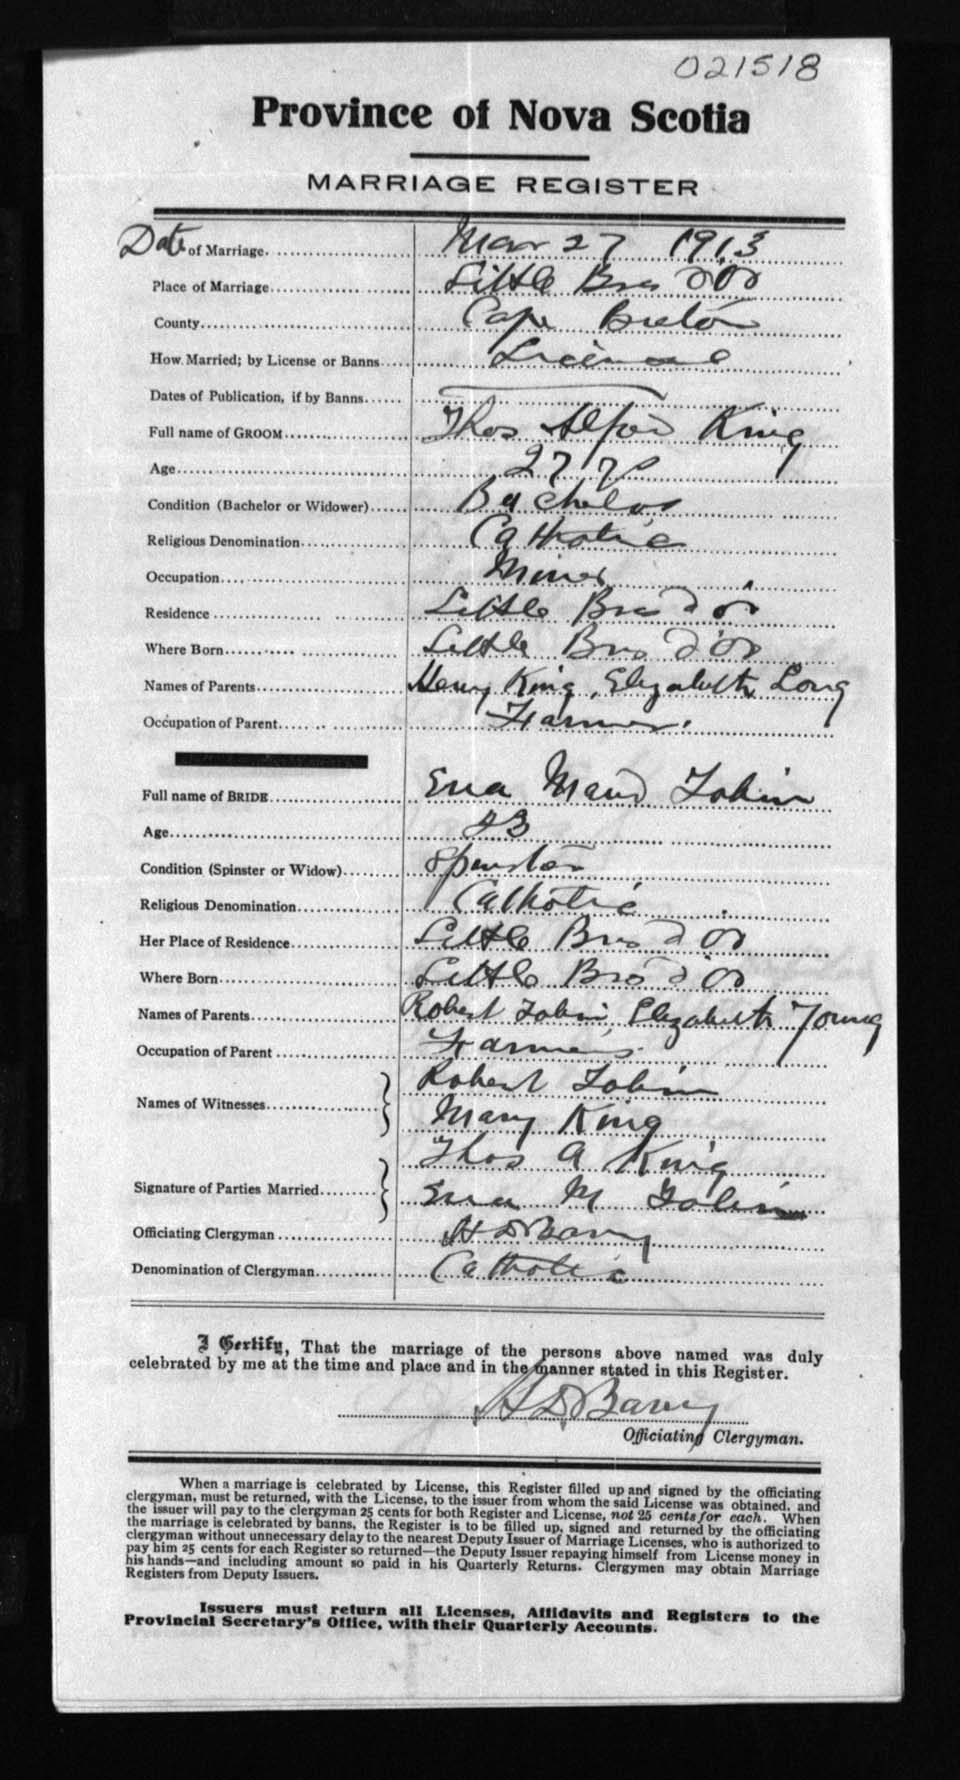 021518
Province of Nova Scotia
MARRIAGE REGISTER
Date of Marriage. Mar 27 1913
Place of Marriage. Little Bras d'Or
County. Cape Breton
How Married; by License or Banns. License
Dates of Publication, if by Banns.
Full name of GROOM. Thos King
Age. 27 yrs
Condition (Bachelor or Widower). Bachelor
Religious Denomination. Catholic
Occupation. Miner
Residence Little Bras d'or
Where Born. Little Bras d'Or
Names of Parents. Henry King, Elizabeth Long
Occupation of Parent. Farmer.
Full name of BRIDE. Ena Maud Tobin
Age. 23
Condition (Spinster or Widow). Spinster
Religious Denomination. Catholic
Her Place of Residence. Little Bras d'Or
Where Born. Little Bras d'Or
Names of Parents. Robert Tobin, Elizabeth Young
Occupation of Parent Farmers
Names of Witnesses. Robert Tobin
Mary King
Thos A King
Signature of Parties Married. Ena M Tobin
Officiating Clergyman H D Barry
Denomination of Clergyman. Catholic
I Certify, That the marriage of the persons above named was duly
celebrated by me at the time and place and in the manner stated in this Register.
H D Barry
Officiating Clergyman.
When a marriage is celebrated by License, this Register filled up and signed by the officiating
clergyman, must be returned, with the License, to the issuer from whom the said License was obtained, and
the issuer will pay to the clergyman 25 cents for both Register and License, not 25 cents for each. When
the marriage is celebrated by banns, the Register is to be filled up, signed and returned by the officiating
clergyman without unnecessary delay to the nearest Deputy Issuer of Marriage Licenses, who is authorized to
pay him 25 cents for each Register so returned—the Deputy Issuer repaying himself from License money in
his hands—and including amount so paid in his Quarterly Returns. Clergymen may obtain Marriage
Registers from Deputy Issuers.
Issuers must return all Licenses, Affidavits and Registers to the
Provincial Secretary's Office, with their Quarterly Accounts.